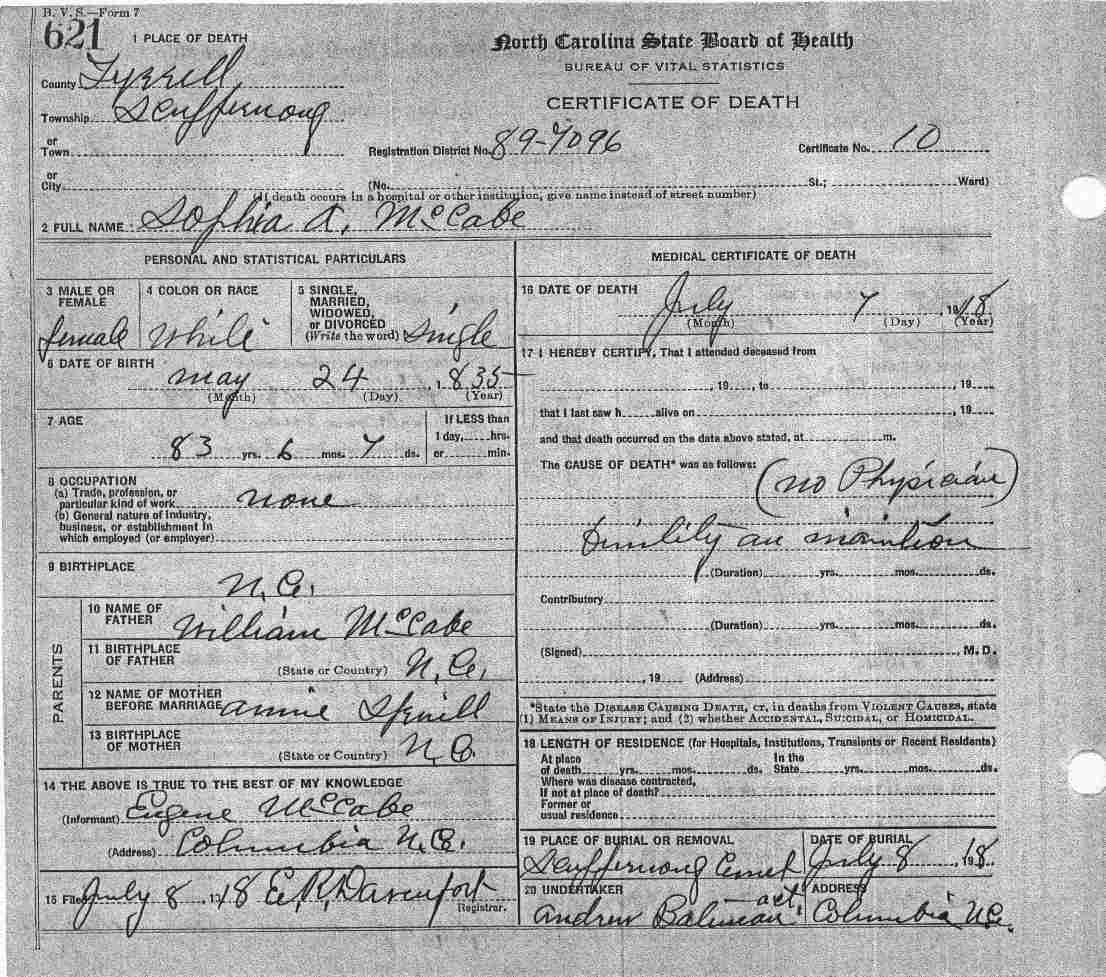 B. V. S.—Form 7
621
1 PLACE OF DEATH
North Carolina State Board of Health
BUREAU OF VITAL STATISTICS
CERTIFICATE OF DEATH
County Tyrrell
Township Scuffernong
or
Town
Registration District No. 89-7096
Certificate No. 10
or
City
(No. St.; Ward)
(If death occurs in a hospital or other institution, give name instead of street number)
2 FULL NAME Sophia A. McCabe
PERSONAL AND STATISTICAL PARTICULARS
3 MALE OR FEMALE
female
4 COLOR OR RACE
White
5 SINGLE,
MARRIED,
WIDOWED,
or DIVORCED
(Write the word) Single
6 DATE OF BIRTH
may 24, 1835
(Month) (Day) (Year)
7 AGE
83 yrs. 6 mos. 7 ds.
If LESS than
1 day, hrs.
or min.
8 OCCUPATION
(a) Trade, profession, or
particular kind of work none
(b) General nature of industry,
business, or establishment in
which employed (or employer)
9 BIRTHPLACE
N.C.
PARENTS
10 NAME OF
FATHER William McCabe
11 BIRTHPLACE
OF FATHER
(State or Country) N.C.
12 NAME OF MOTHER
BEFORE MARRIAGE annie
13 BIRTHPLACE
OF MOTHER
(State or Country) N.C.
14 THE ABOVE IS TRUE TO THE BEST OF MY KNOWLEDGE
(Informant) Eugene McCabe
(Address) Columbia N.C.
15 Filed July 8 1918 E.R. Davenport
Registrar.
MEDICAL CERTIFICATE OF DEATH
16 DATE OF DEATH
July 7, 1918
(Month) (Day) (Year)
17 I HEREBY CERTIFY, That I attended deceased from
, 19 , to , 19
that I last saw h alive on , 19
and that death occurred on the data above stated, at m.
The CAUSE OF DEATH* was as follows:
(no Physician)
(Duration) yrs. mos. ds.
Contributory
(Duration) yrs. mos. ds.
(Signed) , M. D.
, 19 (Address)
*State the DISEASE CAUSING DEATH, or, in deaths from VIOLENT CAUSES, state
(1) MEANS OF INJURY; and (2) whether ACCIDENTAL, SUICIDAL, or HOMICIDAL.
18 LENGTH OF RESIDENCE (for Hospitals, Institutions, Transients or Recent Residents)
At place
of death yrs. mos. ds.
In the
State yrs. mos. ds.
Where was disease contracted,
If not at place of death?
Former or
usual residence
19 PLACE OF BURIAL OR REMOVAL
Scuffernong Cemet
DATE OF BURIAL
July 8, 1918
20 UNDERTAKER
andrew act.
ADDRESS
Columbia N.C.